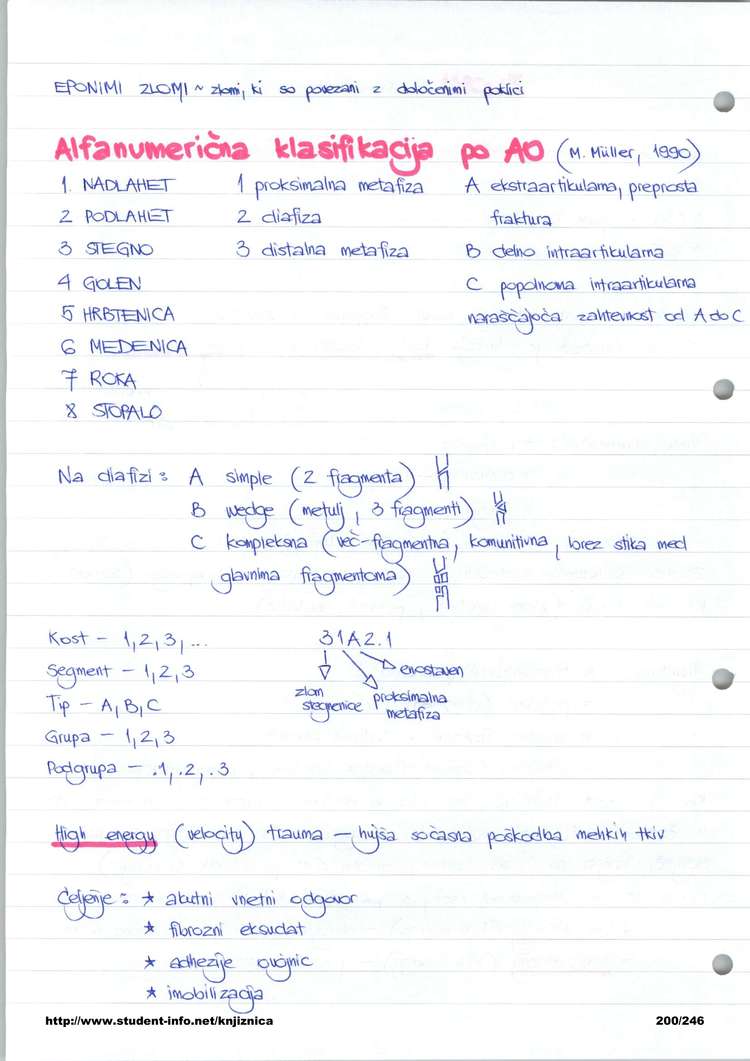 EPONIMI ZLOMI ~ zlomi, ki so povezani z določenimi poklici
Alfanumerična klasifikacija po AO (M. Müller, 1990)
1. NADLAHET 1 proksimalna metafiza A ekstraartikularna, preprosta
2 PODLAHET 2 diafiza fraktura
3 STEGNO 3 distalna metafiza B delno intraartikularna
4 GOLEN C popolnoma intraartikularna
5 HRBTENICA naraščajoča zahtevnost od A do C
6 MEDENICA
7 ROKA
8 STOPALO
Na diafizi: A simple (2 fragmenta)
B wedge (metulj, 3 fragmenti)
C kompleksna (več-fragmentna, komunitivna, brez stika med
glavnima fragmentoma)
Kost - 1,2,3,... 31A2.1
Segment - 1,2,3 enostaven
Tip - A,B,C zlom stegnenice proksimalna metafiza
Grupa - 1,2,3
Podgrupa - .1,.2,.3
High energy (velocity) trauma - hujša sočasna poškodba mehkih tkiv
Celjenje: * akutni vnetni odgovor
* fibrozni eksudat
* adhezije ovojnic
* imobilizacija
http://www.student-info.net/knjiznica 200/246